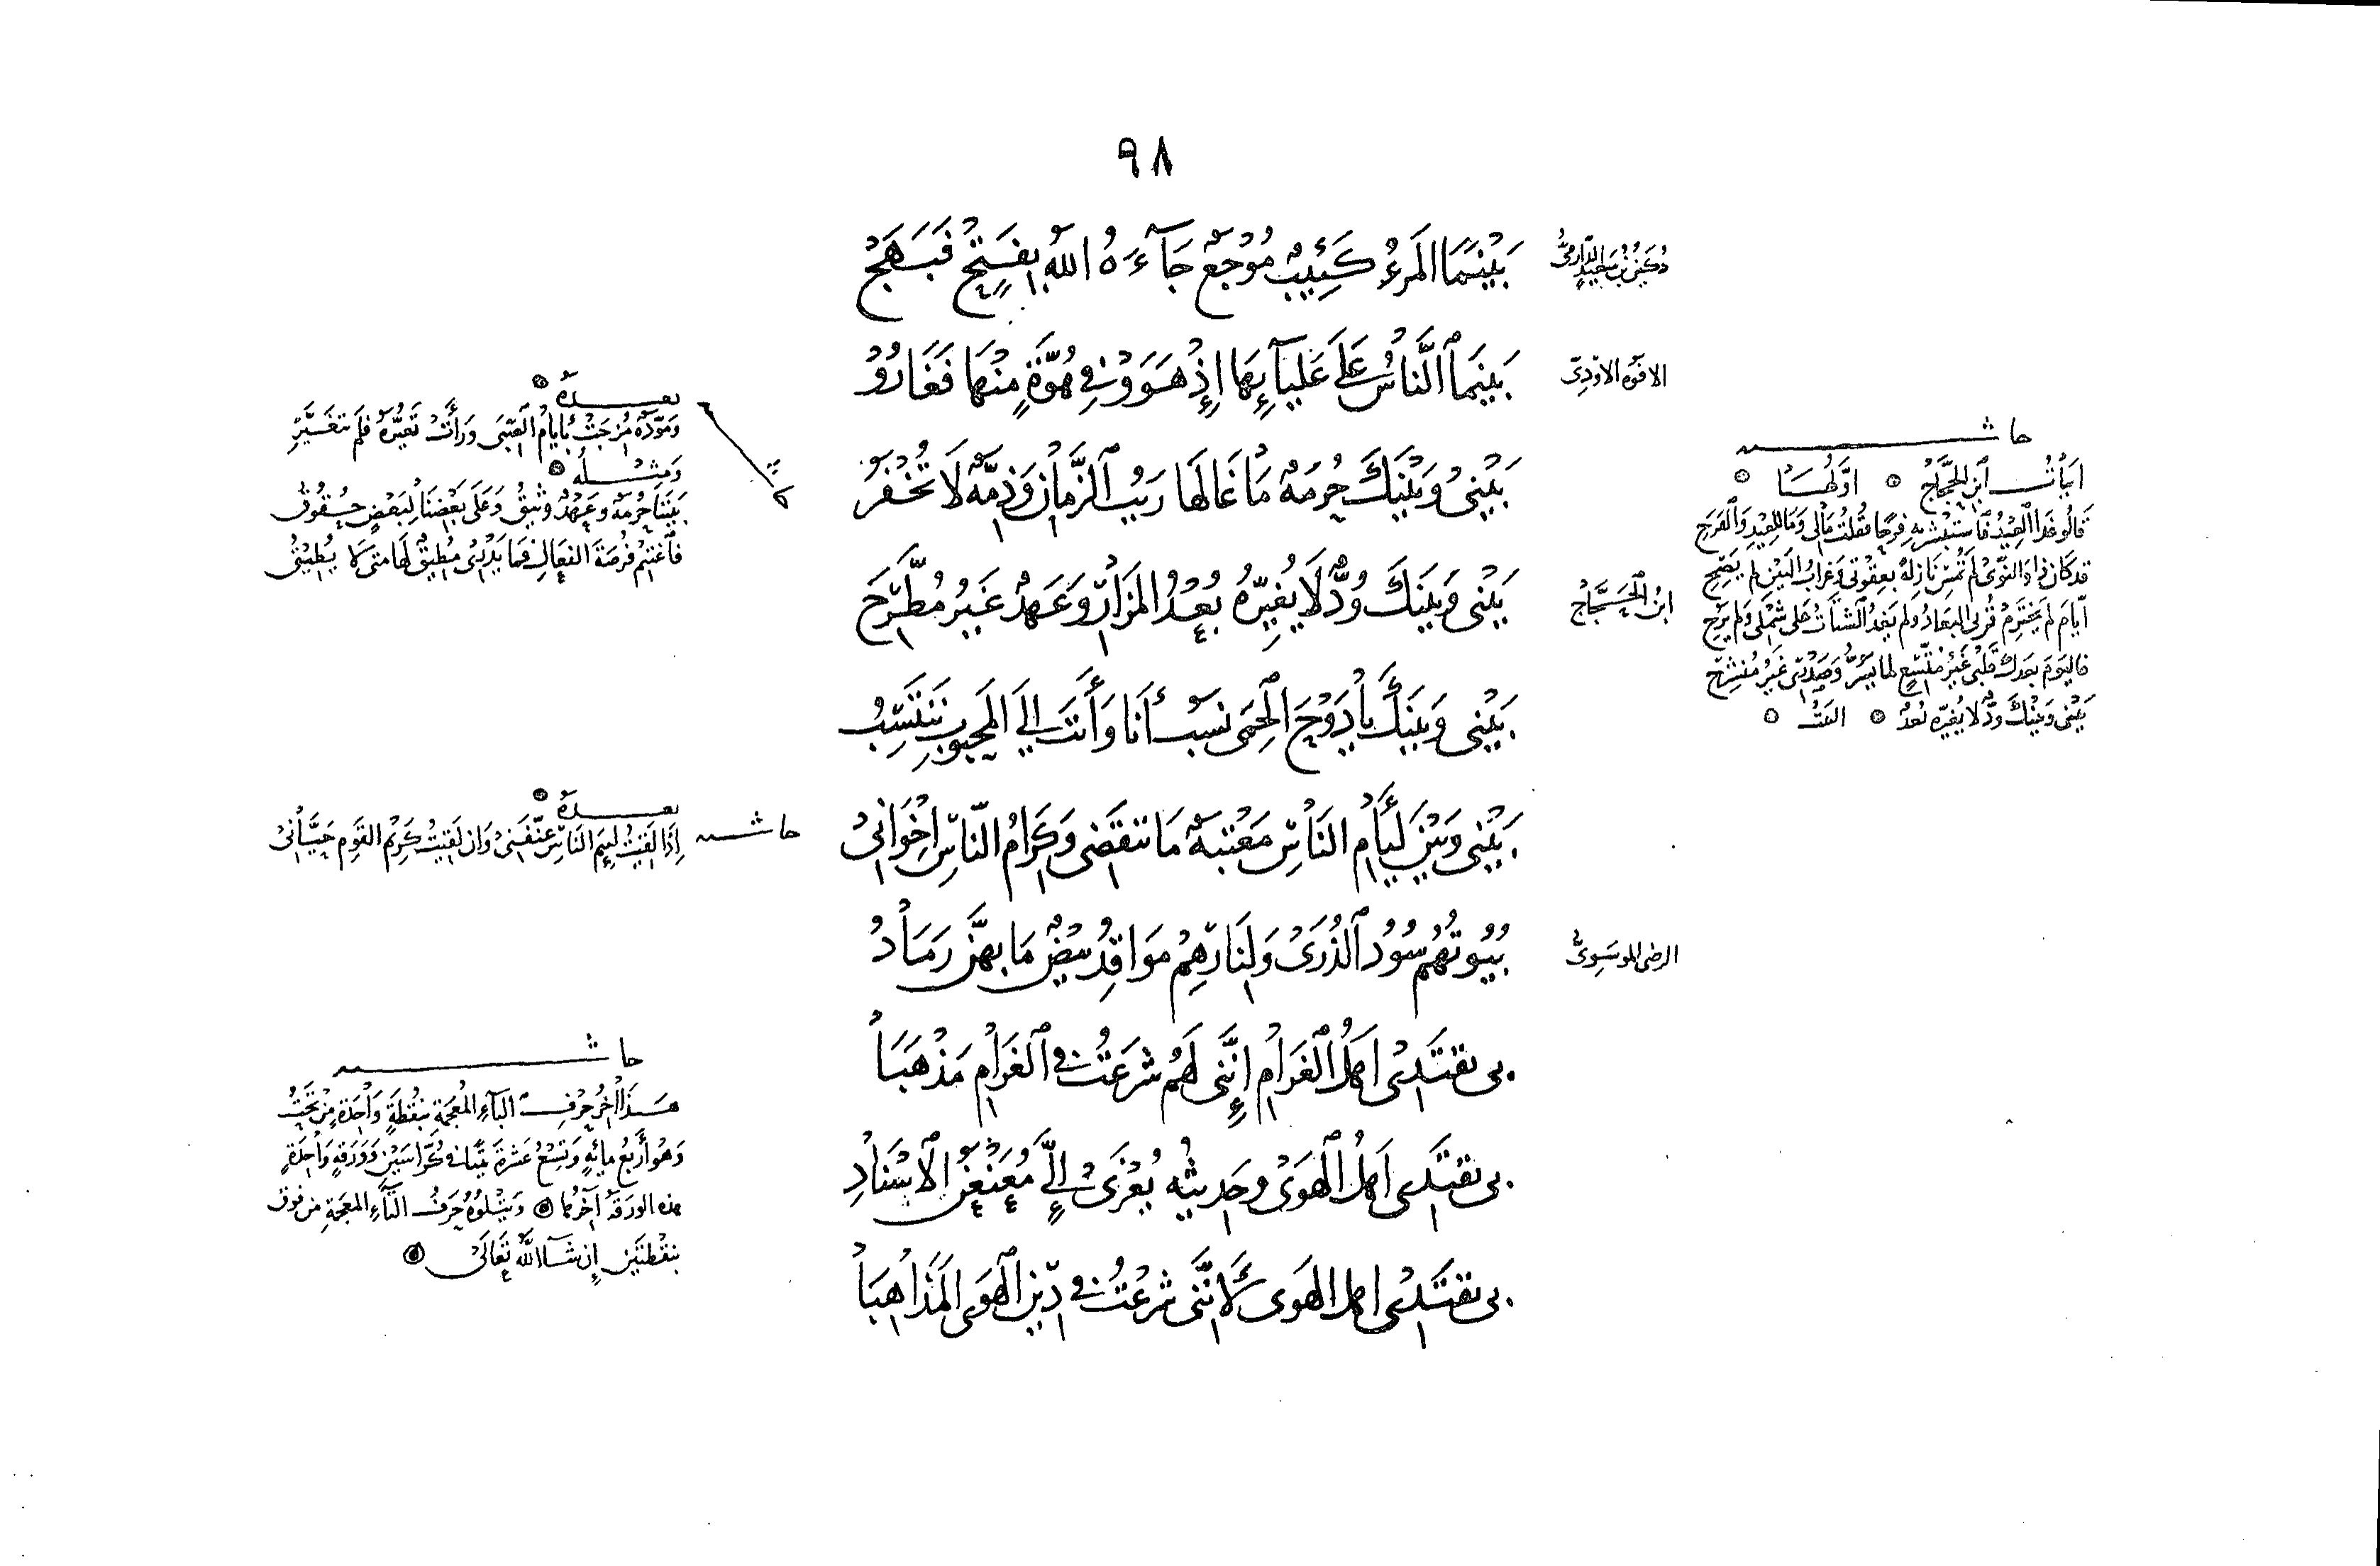 ٩٨
دُكَيْنُ بْنُ سَعِيدٍ الدَّارِمِيُّ
بَيْنَمَا المَرءُ كَئِيبٌ مُوْجَعٌ جَآءَهُ اللَّهُ بِفَتْحٍ فَبَهَجْ
الافوَه الاوْدِىّ
بَينَمَا النَّاسُ عَلَى عَلْيَآئِهَا إِذْ هَوَوْا فِي هُوَّةٍ مِنْهَا فَغَارُوْا
بَيْنِى وَبَيْنَكَ حُرمَةٌ مَا غَالَهَا رَيبُ الزَّمَانِ وَذِمَّةٌ لَا تُخْفَرُ
ابنُ الحَجَّاج
بَيْنِى وَبَينَكَ وُدٌّ لَا يُغيِّرُهُ بُعْدُ المَزَارِ وَعَهدٌ غَيرُ مُطَّرَحِ
بَيْنِى وَبَينَكَ يَا دَوْحَ الحِمَى نسَبٌ أَنَا وَأَنتَ إِلَى المَحبُوبِ نَنتَسِبُ
بَيْنِى وَبَيْنَ لِئَامِ النَّاسِ مَعْتبَةٌ مَا تنقَضِى وَكِرَامُ النَّاسِ إِخْوَانِى
الرضى الموسَوِىّ
بُيُوتُهُم سُوْدُ الذُّرَى وَلِنَارِهِمْ مَوَاقِدُ بيضٌ مَا بِهِنَّ رَمَادُ
بِى يقتَدِى اهلُ الغَرَامِ إِنَّنِى لَهُم شَرَعتُ فِى الغَرَامِ مَذْهَبَا
بِى يقتَدِى اهلُ الهَوَى وحَديثُه يُعْزَى إِلَى مُعَنْعَنِ الاسْنَادِ
بِى يقتَدِى اهل الهَوَى لأنَّنِى شَرَعْتُ فِى دِيْنِ الهَوَى المَذَاهِبَا
حاشيه
ابيَاتُ ابنِ الحَجَّاجِ اوَّلُهَا
قَالُوا غَدًا العِيدُ فَاستَبْشِرْ بهِ فرَحًا فقُلتُ مَالِى وَمَا لِلعِيدِ وَالفَرَحِ
قد كَانَ ذا وَالنَّوَى لَم تُمسِ نَازلةً بعقوتِى وَغرَابُ البَيْنِ لم يَصِحِ
أيَّامَ لَم يَختَرِمْ قُربِى البعَادُ وَلم يَغْدُ الشتَاتُ عَلَى شَملِى وَلم يَرُحِ
فاليَومَ بعدَكَ قَلبِى غَيرُ مُتَّسِعٍ لما يَسُرُّ وَصَدْرِى غَيرُ مُنشَرِحِ
بَيْنِى وَبَيْنَكَ وُدٌّ لا يُغيِّرُه بُعْدُ البَيتُ
بعـــدَهُ
وَمَوَدَّةٌ مُزجَتْ بِأيَّامِ الصِّبَى وَرَأَتْ تَغَيُّرَهُ فلَم تتغَيَّرِ
وَمِثْلُه
بَيْنَنَا حُرمَةٌ وَعَهْدٌ وَثِيقُ وَعَلَى بَعْضِنَا لِبَعْضٍ حُقُوقُ
فَاغْتَنِم فُرصَةَ الفعَالِ فمَا يَدْرِى مُطِيقٌ لَهَا مَتى لا يُطِيقُ
حاشيه
بعـــدَهُ
إِذَا لَقِيتُ لئِيمَ النَّاسِ عَنَّفَنِى وَان لَقِيتُ كَرِيمَ القَومِ حَيَّانِى
حاشيه
هَذَا آخرُ حَرْفِ البَآءِ المُعجمَةِ بنُقطَةٍ وَاحدَةٍ مِنْ تَحتُ
وَهُوَ أربَعُ مِائَةٍ وَتِسْعَ عَشرَةَ بَيتًا فى كُرَّاسَيْنِ وَوَرَقةٍ وَاحِدَةٍ
هذه الورَقةُ آخرُهَا وَيَتْلُوهُ حَرفُ التَّآءِ المعجَمةِ من فوق
بنقْطَتَيْنِ إِن شَآءَ اللَّهُ تَعَالَى